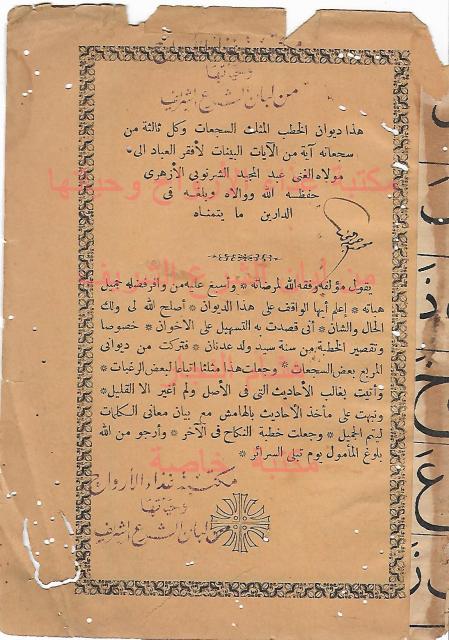 مكتبة غذاء الأرواح
وحياتها
من لبان الشرع الشريف
هذا ديوان الخطب المثلث السجعات وكل ثالثة من
سجعاته آية من الآيات البينات لأفقر العباد الى
مولاه الغنى عبد المجيد الشرنوبى الأزهرى
حفظه الله ووالاه وبلغه فى
الدارين ما يتمناه
مكتبة غذاء الأرواح وحياتها
من لبان الشرع الشريف
يقول مؤلفه وفقه الله لمرضاته * وأسبغ عليه من وافر فضله جميل
هباته * إعلم أيها الواقف على هذا الديوان * أصلح الله لى ولك
الحال والشان * أنى قصدت به التسهيل على الاخوان * خصوصا
وتقصير الخطبة من سنة سيد ولد عدنان * فتركت من ديوانى
المربع بعض السجعات * وجعلت هذا مثلثا اتباعا لبعض الرغبات *
وأتيت بغالب الأحاديث التى فى الأصل ولم أغير الا القليل *
ونبهت على مأخذ الأحاديث بالهامش مع بيان معانى الكلمات
ليتم الجميل * وجعلت خطبة النكاح فى الآخر * وأرجو من الله
بلوغ المأمول يوم تبلى السرائر *
مكتبة خاصة
مكتبة غذاء الأرواح
وحياتها
من لبان الشرع الشريف